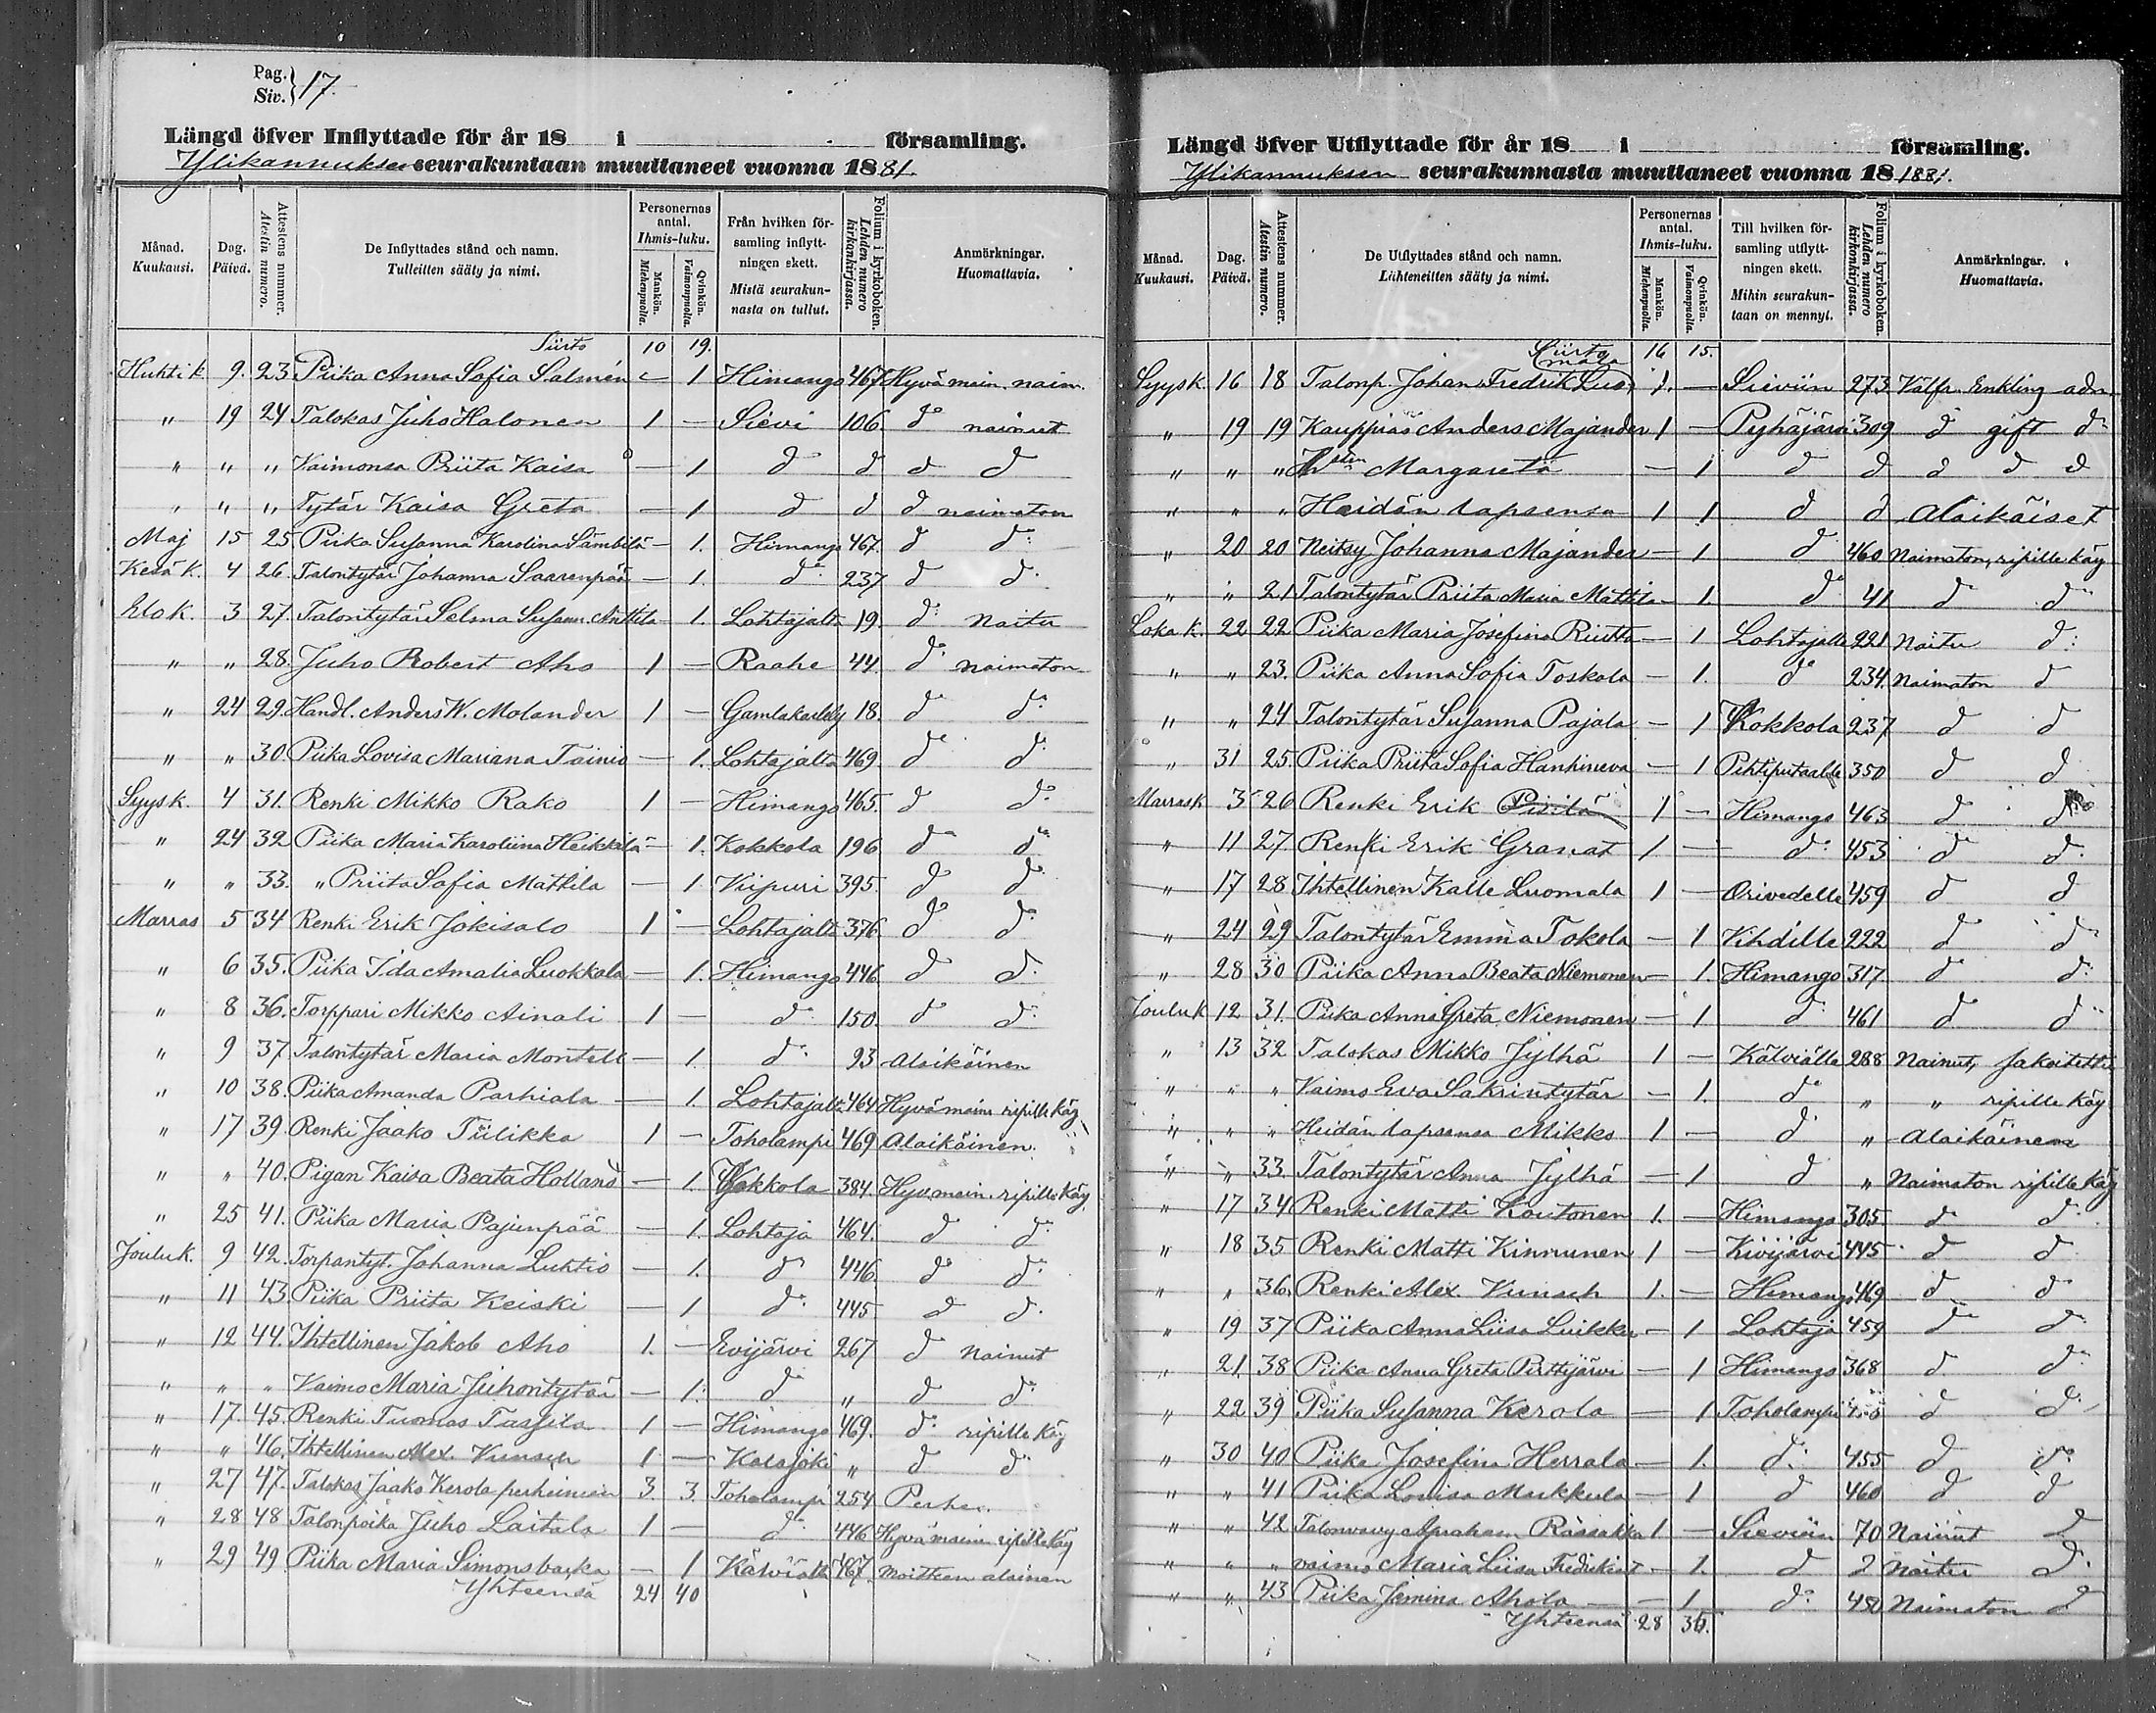 Pag. Siv. } 17.
Längd öfver Inflyttade för år 18 i församling.
Ylikannuksen seurakuntaan muuttaneet vuonna 1881.
Månad. Kuukausi. | Dag. Päivä. | Attestens nummer. Atestin numero. | De Inflyttades stånd och namn. Tulleitten sääty ja nimi. | Personernas antal. Ihmis-luku. Mankön. Miehenpuolta. Qvinkön. Vaimonpuolta. | Från hvilken församling inflyttningen skett. Mistä seurakunnasta on tullut. | Folium i kyrkoboken. Lehden numero kirkonkirjassa. | Anmärkningar. Huomattavia.
Siirto 10 19.
Huhtik 9. 23. Piika Anna Sofia Salmén — 1 Himango 467 Hyvä main. naim.
" 19 24 Talokas Juho Halonen 1 — Sievi 106 d:o nainut
" " " Vaimonsa Priita Kaisa — 1 d d d d
" " " Tytär Kaisa Greta — 1 d d d naimaton
Maj 15 25 Piika Susanna Karolina Sämbilä — 1. Himango 467. d d:
Kesäk. 4 26. Talontytär Johanna Saarenpää — 1. d:o 237 d d.
Elok. 3 27. Talontytär Selma Susann. Anttila — 1. Lohtajalta 19. d: Naitu
" " 28. Juho Robert Aho 1 — Raahe 44. d:o naimaton
" 24 29. Handl. Anders W. Molander 1 — Gamlakarleby 18. d:o d:o
" " 30. Piika Lovisa Mariana Tainio — 1. Lohtajalta 469. d:o d:
Syysk. 4 31. Renki Mikko Rako 1 — Himango 465. d d:o
" 24 32 Piika Maria Karoliina Heikkilä — 1. Kokkola 196 d:o d:o
" " 33. " Priita Sofia Mattila — 1. Viipuri 395. d:o d:o
Marras 5 34 Renki Erik Jokisalo 1 — Lohtajalta 376. d:o d:
" 6 35. Piika Ida Amalia Luokkala — 1. Himango 446 d:o d:
" 8 36. Torppari Mikko Ainali 1 — d:o 150. d:o d:
" 9 37. Talontytär Maria Montell — 1. d:o 93 alaikäinen
" 10 38. Piika Amanda Parhiala — 1. Lohtajalta 464 Hyvämaine ripillä käy
" 17 39. Renki Jaako Tülikka 1 — Toholampi 469 Alaikäinen.
" " 40. Pigan Kaisa Beata Holland — 1. Kokkola 384. Hyv.main. ripillä käy.
" 25 41. Piika Maria Pajunpää — 1. Lohtaja 464. d d:
Jouluk. 9 42. Torpantyt. Johanna Luhtio — 1. d:o 446 d:o d:o
" 11 43. Piika Priita Keiski — 1 d:o 445. d d.
" 12 44. Ihtellinen Jakob Aho 1. — Evijärvi 267 d Nainut
" " " Vaimo Maria Juhontytär — 1. d:o " d d:o
" 17. 45. Renki Tuomas Tassila 1 — Himango 469. d:o ripillä käy
" " 46. Ihtellinen Alex. Vunsch 1 — Kalajoki " d d:o
" 27 47. Talokas Jaako Kerola perheineen 3. 3. Toholampi 254 Perhe.
" 28 48 Talonpoika Juho Laitala 1 — d:o 446 Hyvämaine ripillä käy
" 29 49. Piika Maria Simonsbacka — 1 Kälviältä 467.
Yhteensä 24 40
Längd öfver Utflyttade för år 18 i församling.
Ylikannuksen seurakunnasta muuttaneet vuonna 18 1881.
Månad. Kuukausi. | Dag. Päivä. | Attestens nummer. Atestin numero. | De Utflyttades stånd och namn. Lähteneitten sääty ja nimi. | Personernas antal. Ihmis-luku. Mankön. Miehenpuolta. Qvinkön. Vaimonpuolta. | Till hvilken församling utflyttningen skett. Mihin seurakuntaan on mennyt. | Folium i kyrkoboken. Lehden numero kirkonkirjassa. | Anmärkningar. Huomattavia.
Siirto 16 15.
Syysk. 16 18 Talonp. Johan Fredrik Luomala 1. — Sieviin 273 Välfr. Enkling adm.
" 19 19 Kauppias Anders Majander 1 — Pyhäjärvi 309 d gift d:o
" " " Margareta — 1 d d d d d
" " " Heidän lapsensa 1 1 d d Alaikäiset
" 20 20 Neitsy Johanna Majander — 1 d:o 460 Naimaton, ripille käy
" " 21 Talontytär Priita Maria Mattila — 1. d:o 41 d d:o
Lokak. 22 22. Piika Maria Josefina Riutta — 1 Lohtajalle 221 Naitu d:
" " 23. Piika Anna Sofia Toskala — 1. d:o 234. Naimaton d
" " 24 Talontytär Susanna Pajala — 1 Kokkola 237 d d
" 31 25. Piika Priita Sofia Hanhineva — 1 Pihtiputaalle 350 d d
Marrask 3 26 Renki Erik Pirilä 1 — Himango 463 d d:o
" 11 27 Renki Erik Granat 1 — d:o 453 d d.
" 17 28 Ihtellinen Kalle Luomala 1 — Orivedelle 459 d d
" 24 29 Talontytär Emma Tokola — 1 Vihdille 222 d d:o
" 28 30 Piika Anna Beata Niemonen — 1. Himango 317. d:o d:
Jouluk 12 31. Piika Anna Greta Niemonen — 1 d:o 461 d d:o
" 13 32 Talokas Mikko Jylhä 1 — Kälviälle 288 Nainut,
" " " Vaimo Eva Sakrintytär — 1. d:o " " ripille käy
" " " Heidän lapsensa Mikko 1 — d:o " Alaikäinen
" " 33. Talontytär Anna Jylhä — 1 d:o " Naimaton ripille käy
" 17 34 Renki Matti Koutonen 1. — Himango 305 d. d:o
" 18 35 Renki Matti Kinnunen 1 — Kivijärvi 445 d d
" " 36. Renki Alex. Vunsch 1. — Himango 469 d d:o
" 19 37 Piika Anna Liisa Luikku — 1 Lohtaja 459 d:o d:
" 21. 38 Piika Anna Greta Pirttijärvi — 1 Himango 368 d d:o
" 22 39 Piika Susanna Kerola — 1 Toholampi d d:
" 30 40 Piika Josefina Herrala — 1. d: 455 d d:o
" " 41 Piika Lovisa Markkula — 1 d 460 d d
" " 42 Talonvavy Abraham Rässäkkä 1 — Sieviin 70 Nainut d
" " " vaimo Maria Liisa Fredrikint. — 1. d d Naitu d:
" " 43 Piika Jemina Ahola — 1 d:o 450 Naimaton d
Yhteensä 28 36.